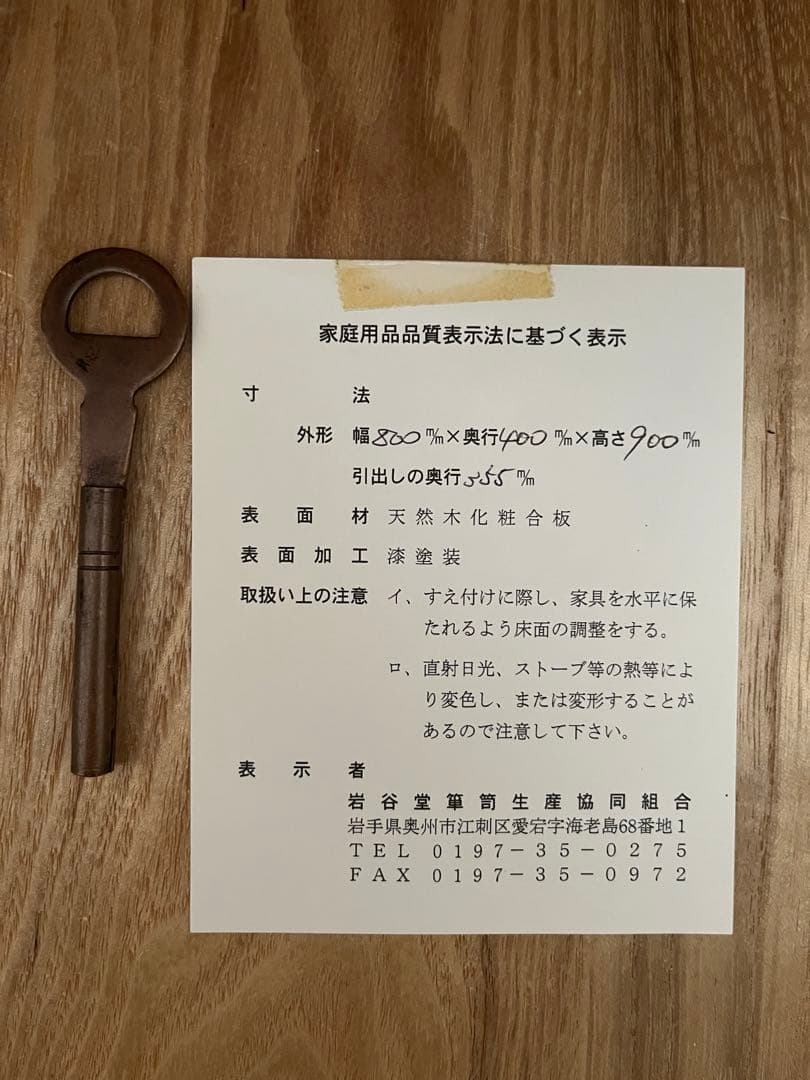 家庭用品品質表示法に基づく表示
寸法
外形 幅800m/m×奥行400m/m×高さ900m/m
引出しの奥行355m/m
表面材 天然木化粧合板
表面加工 漆塗装
取扱い上の注意 イ、すえ付けに際し、家具を水平に保
たれるよう床面の調整をする。
ロ、直射日光、ストーブ等の熱等によ
り変色し、または変形することが
あるので注意して下さい。
表示者
岩谷堂箪笥生産協同組合
岩手県奥州市江刺区愛宕字海老島68番地1
TEL 0197-35-0275
FAX 0197-35-0972